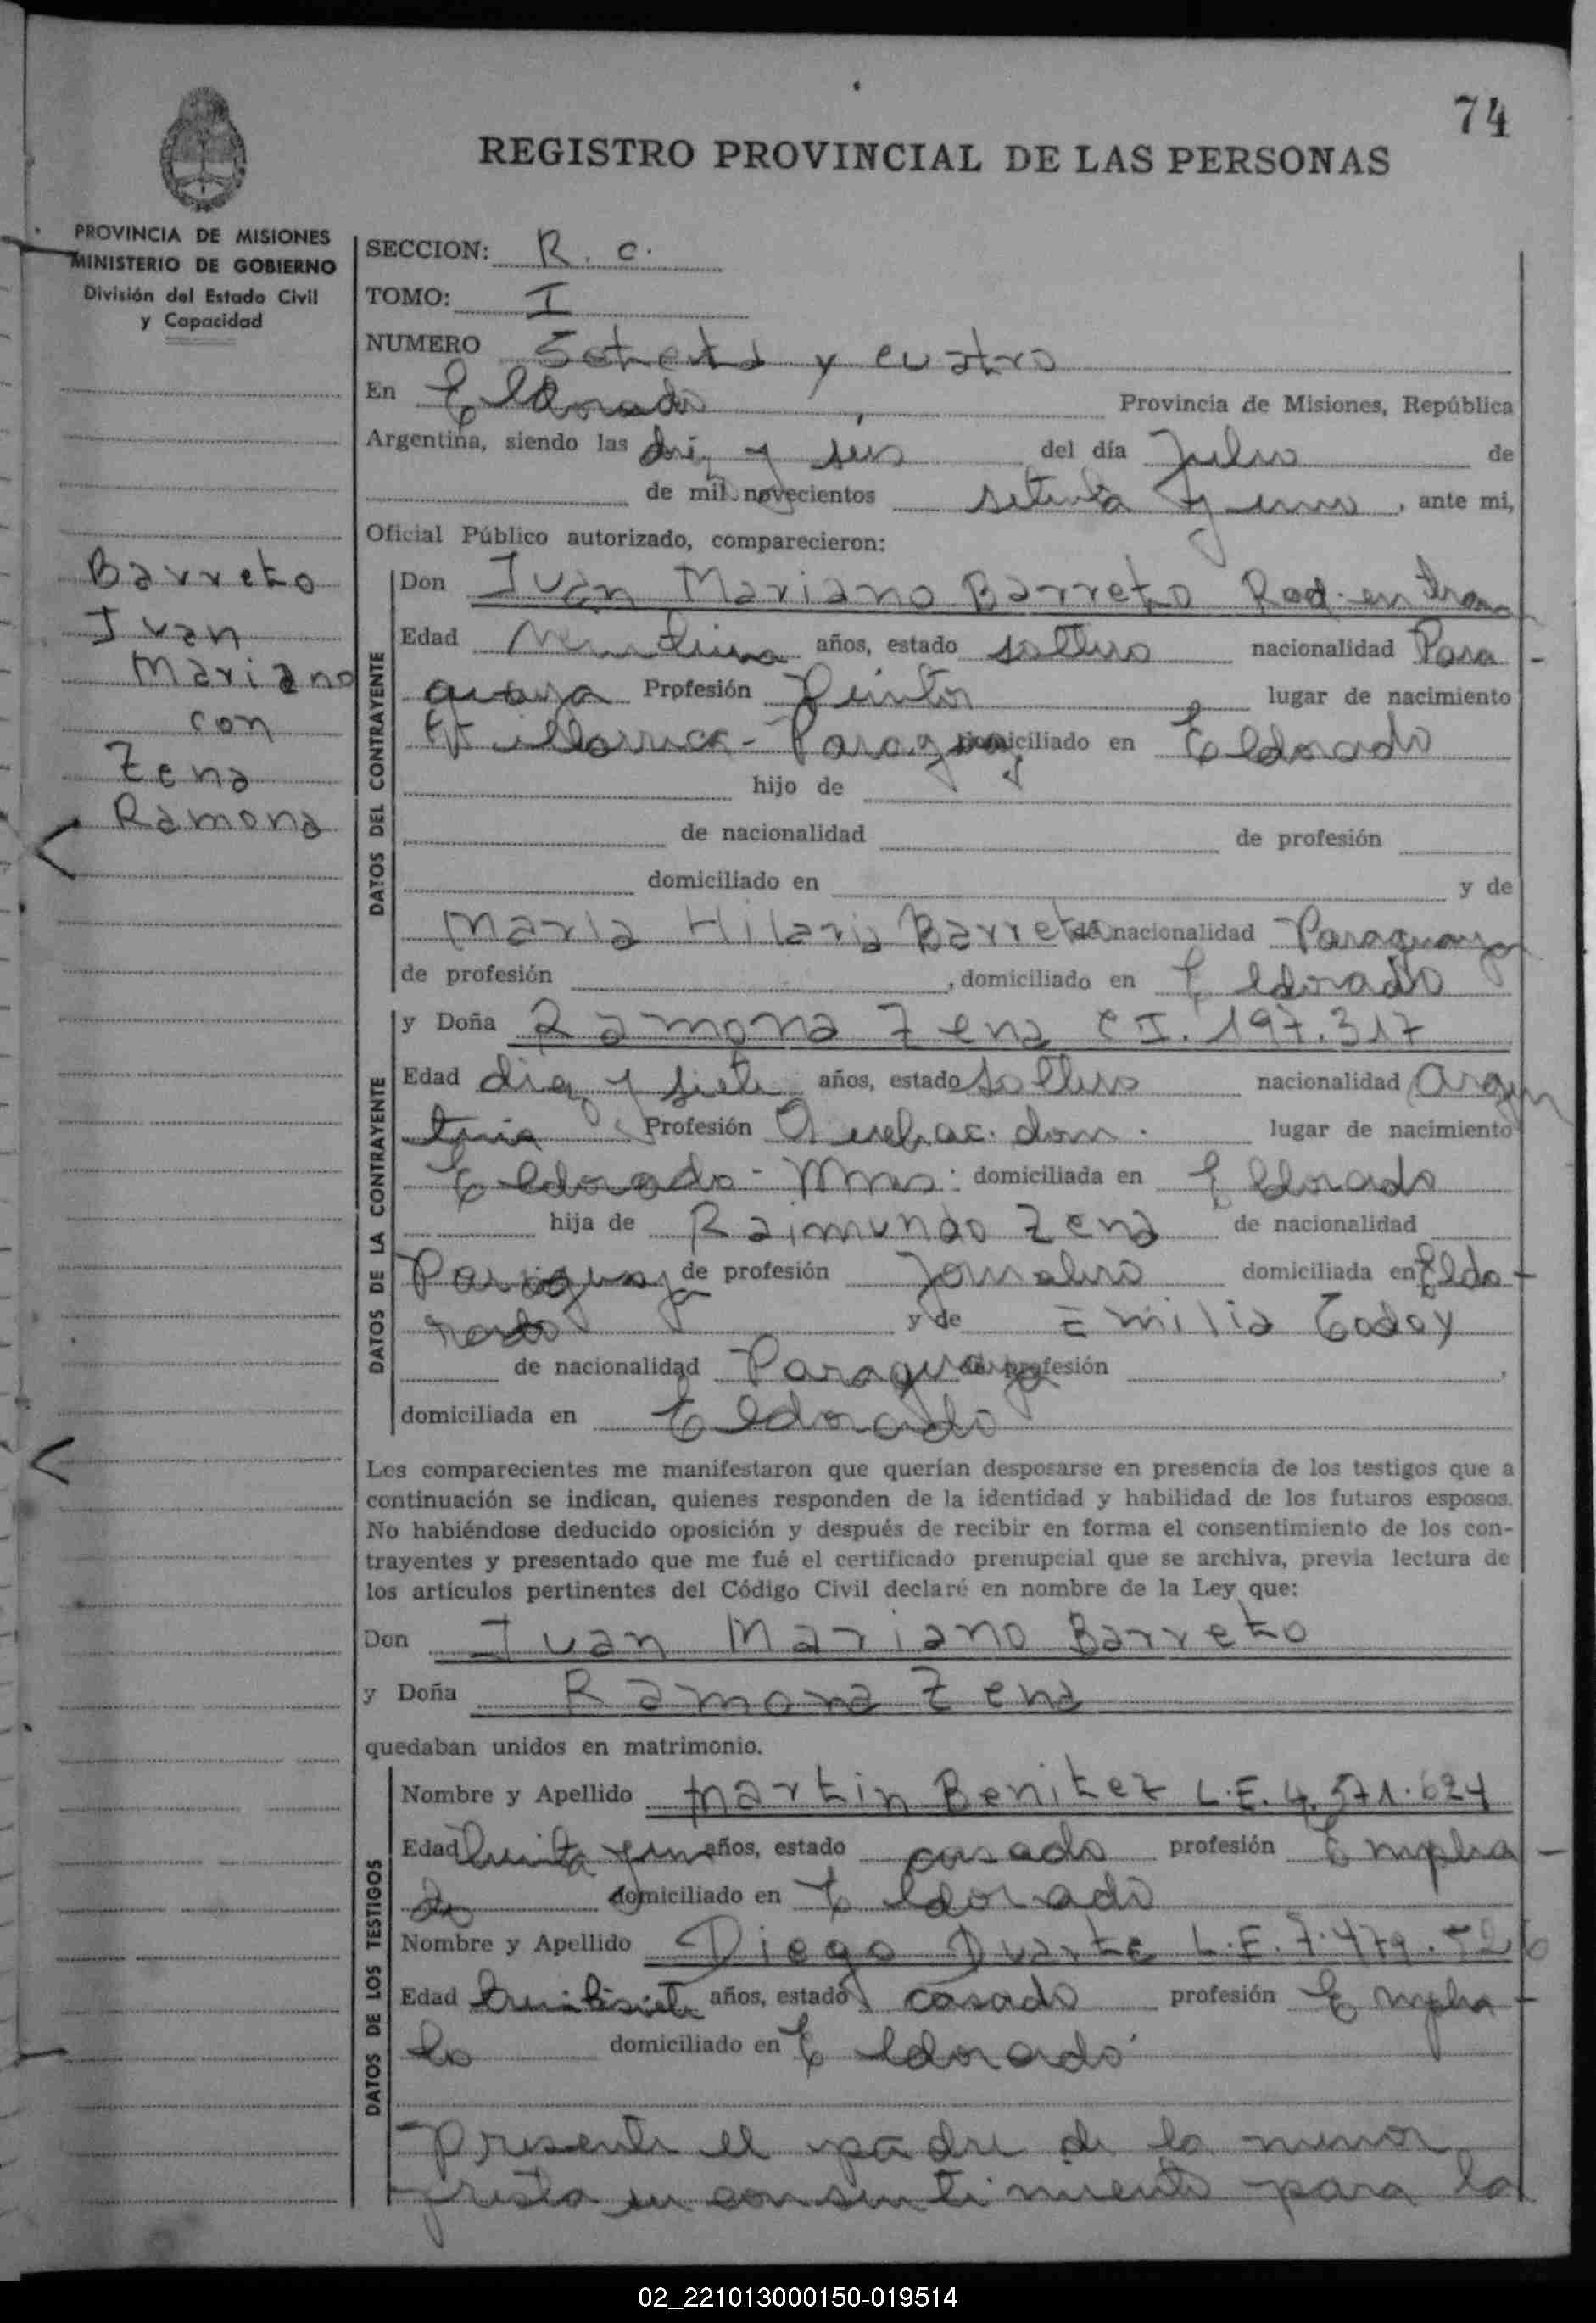 74
REGISTRO PROVINCIAL DE LAS PERSONAS
PROVINCIA DE MISIONES
MINISTERIO DE GOBIERNO
División del Estado Civil
y Capacidad
Barreto
Juan
Mariano
con
Zena
Ramona
SECCION: R. c.
TOMO: I
NUMERO Setenta y cuatro
En Eldorado, Provincia de Misiones, República
Argentina, siendo las diez y seis del día Julio de
de mil novecientos setenta y uno, ante mi,
Oficial Público autorizado, comparecieron:
DATOS DEL CONTRAYENTE
Don Juan Mariano Barreto Rad. en tram.
Edad años, estado soltero nacionalidad Para-
guaya Profesión Pintor lugar de nacimiento
Villarrica - Paraguay domiciliado en Eldorado
hijo de
de nacionalidad de profesión
domiciliado en y de
Maria Hilaria Barreto de nacionalidad Paraguaya
de profesión , domiciliado en Eldorado
DATOS DE LA CONTRAYENTE
y Doña Ramona Zena C I. 197.317
Edad diez y siete años, estado soltera nacionalidad Argen
tina Profesión Quehac. dom. lugar de nacimiento
Eldorado - Mnes. domiciliada en Eldorado
hija de Raimundo Zena de nacionalidad
Paraguaya de profesión Jornalero domiciliada en Eldo-
rado y de Emilia Godoy
de nacionalidad Paraguaya de profesión ,
domiciliada en Eldorado
Los comparecientes me manifestaron que querían desposarse en presencia de los testigos que a
continuación se indican, quienes responden de la identidad y habilidad de los futuros esposos.
No habiéndose deducido oposición y después de recibir en forma el consentimiento de los con-
trayentes y presentado que me fué el certificado prenupcial que se archiva, previa lectura de
los artículos pertinentes del Código Civil declaré en nombre de la Ley que:
Don Juan Mariano Barreto
y Doña Ramona Zena
quedaban unidos en matrimonio.
DATOS DE LOS TESTIGOS
Nombre y Apellido Martin Benitez L.E. 4.571.624
Edad treinta y un años, estado casado profesión Emplea-
do domiciliado en Eldorado
Nombre y Apellido Diego Duarte L.E. 7.479.526
Edad treintisiete años, estado casado profesión Emplea-
do domiciliado en Eldorado
Presente el padre de la menor
presta su consentimiento para la
02_221013000150-019514